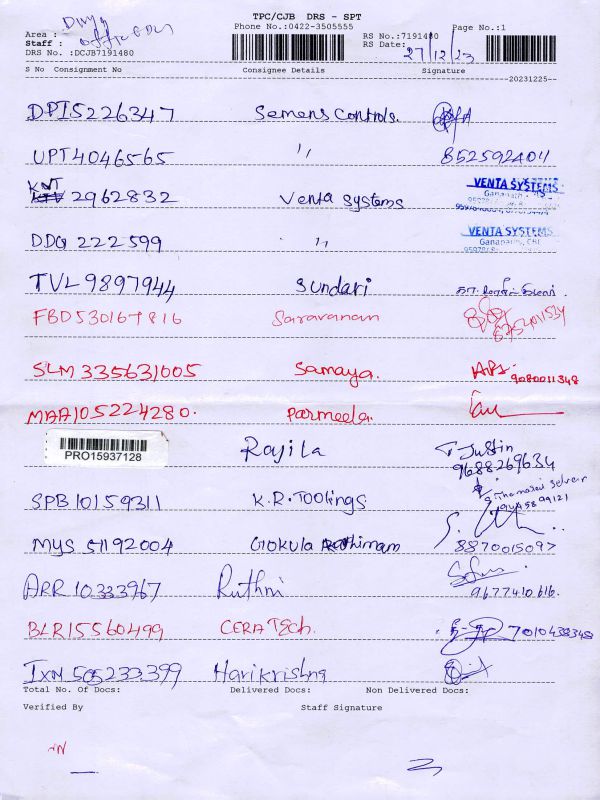 TPC/CJB DRS - SPT
Phone No.:0422-3505555
Page No.:1
Area :
Staff :
DRS No. :DCJB7191480
RS No.:7191480
RS Date: 27/12/23
S No Consignment No Consignee Details Signature
20231225--
DPI5226347 Semens Controls.
UPT4046565 〃 852592404
KNT 2962832 Venta Systems VENTA SYSTEMS
DDQ 222599 〃 VENTA SYSTEMS
TVL 9897944 Sundari
FBD530167816 Saravanan
SLM 335631005 Samaya. 9080011348
MAA105224280. Parmeela.
PRO15937128 Rojila Justin
9688269634
SPB10159311 K.R. Toolings
MYS 51192004 Gokula 8870015097
ARR 10333967 Ruthni 9677410616.
BLR15560499 CERA Tech.
IXM 505233399 Harikrishna
Total No. Of Docs: Delivered Docs: Non Delivered Docs:
Verified By Staff Signature